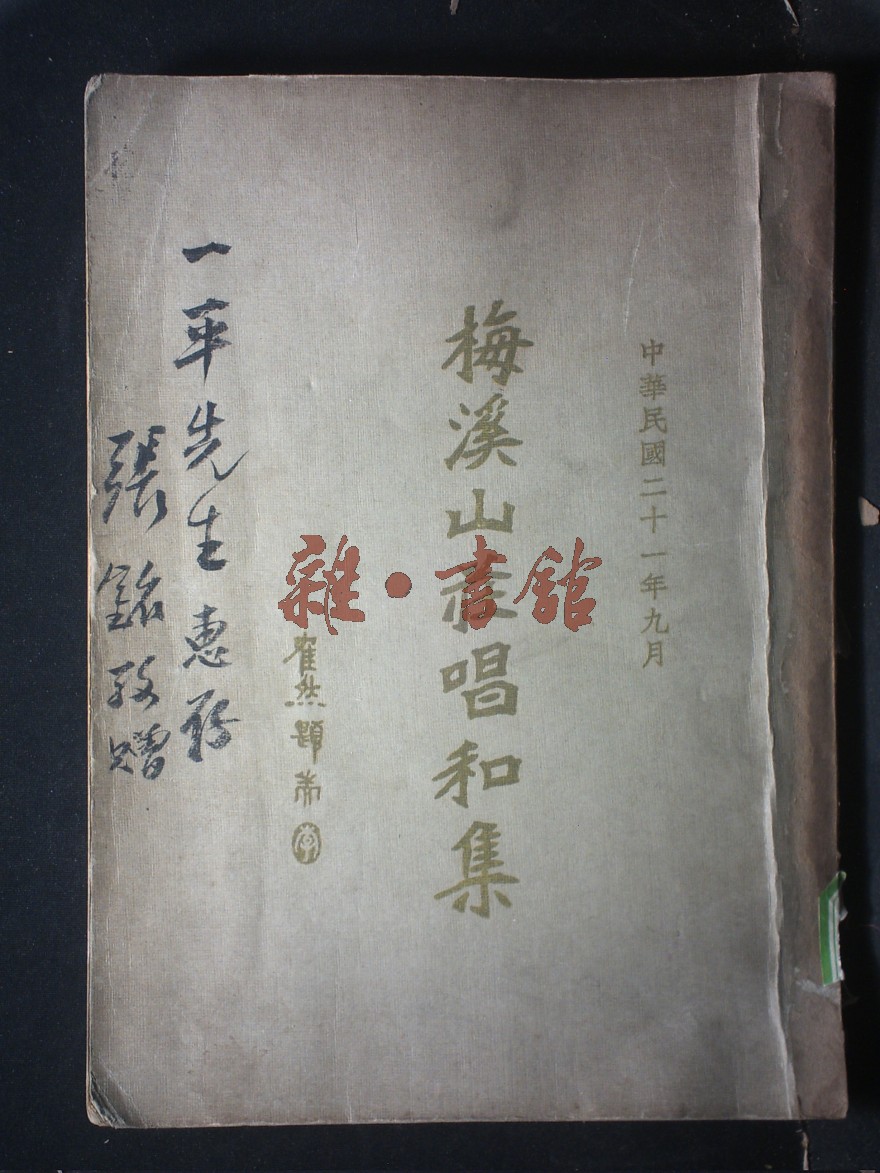 中華民國二十一年九月
梅溪山農唱和集
題耑
雜·書舘
一平先生惠存
張銘敬贈